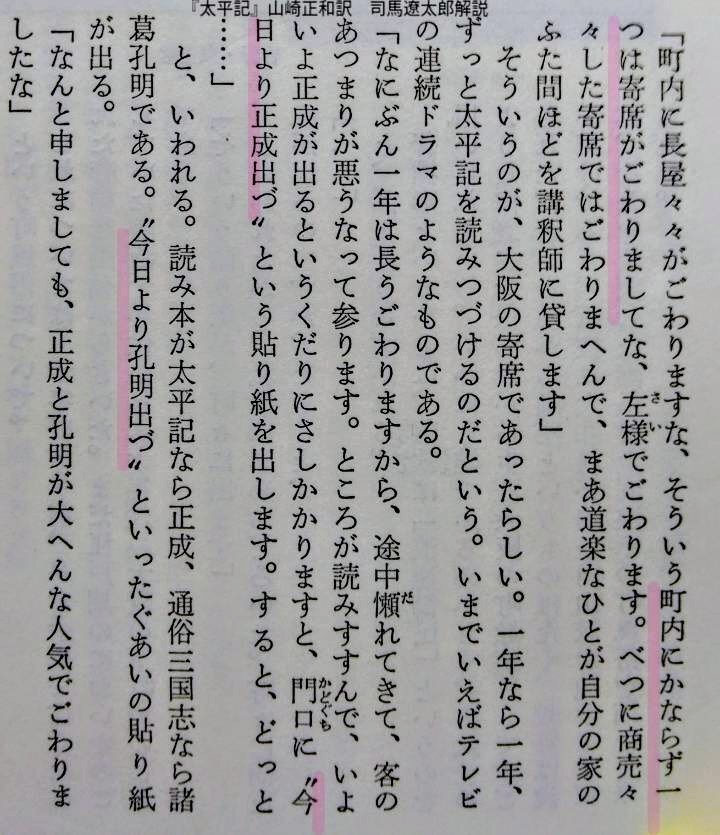 『太平記』山崎正和訳　司馬遼太郎解説
「町内に長屋々々がごわりますな、そういう町内にかならず一
つは寄席がごわりましてな、左様でごわります。べつに商売々
々した寄席ではごわりまへんで、まあ道楽なひとが自分の家の
ふた間ほどを講釈師に貸します」
そういうのが、大阪の寄席であったらしい。一年なら一年、
ずっと太平記を読みつづけるのだという。いまでいえばテレビ
の連続ドラマのようなものである。
「なにぶん一年は長うごわりますから、途中懶れてきて、客の
あつまりが悪うなって参ります。ところが読みすすんで、いよ
いよ正成が出るというくだりにさしかかりますと、門口に〝今
日より正成出づ〟という貼り紙を出します。すると、どっと
……」
と、いわれる。読み本が太平記なら正成、通俗三国志なら諸
葛孔明である。〝今日より孔明出づ〟といったぐあいの貼り紙
が出る。
「なんと申しましても、正成と孔明が大へんな人気でごわりま
したな」